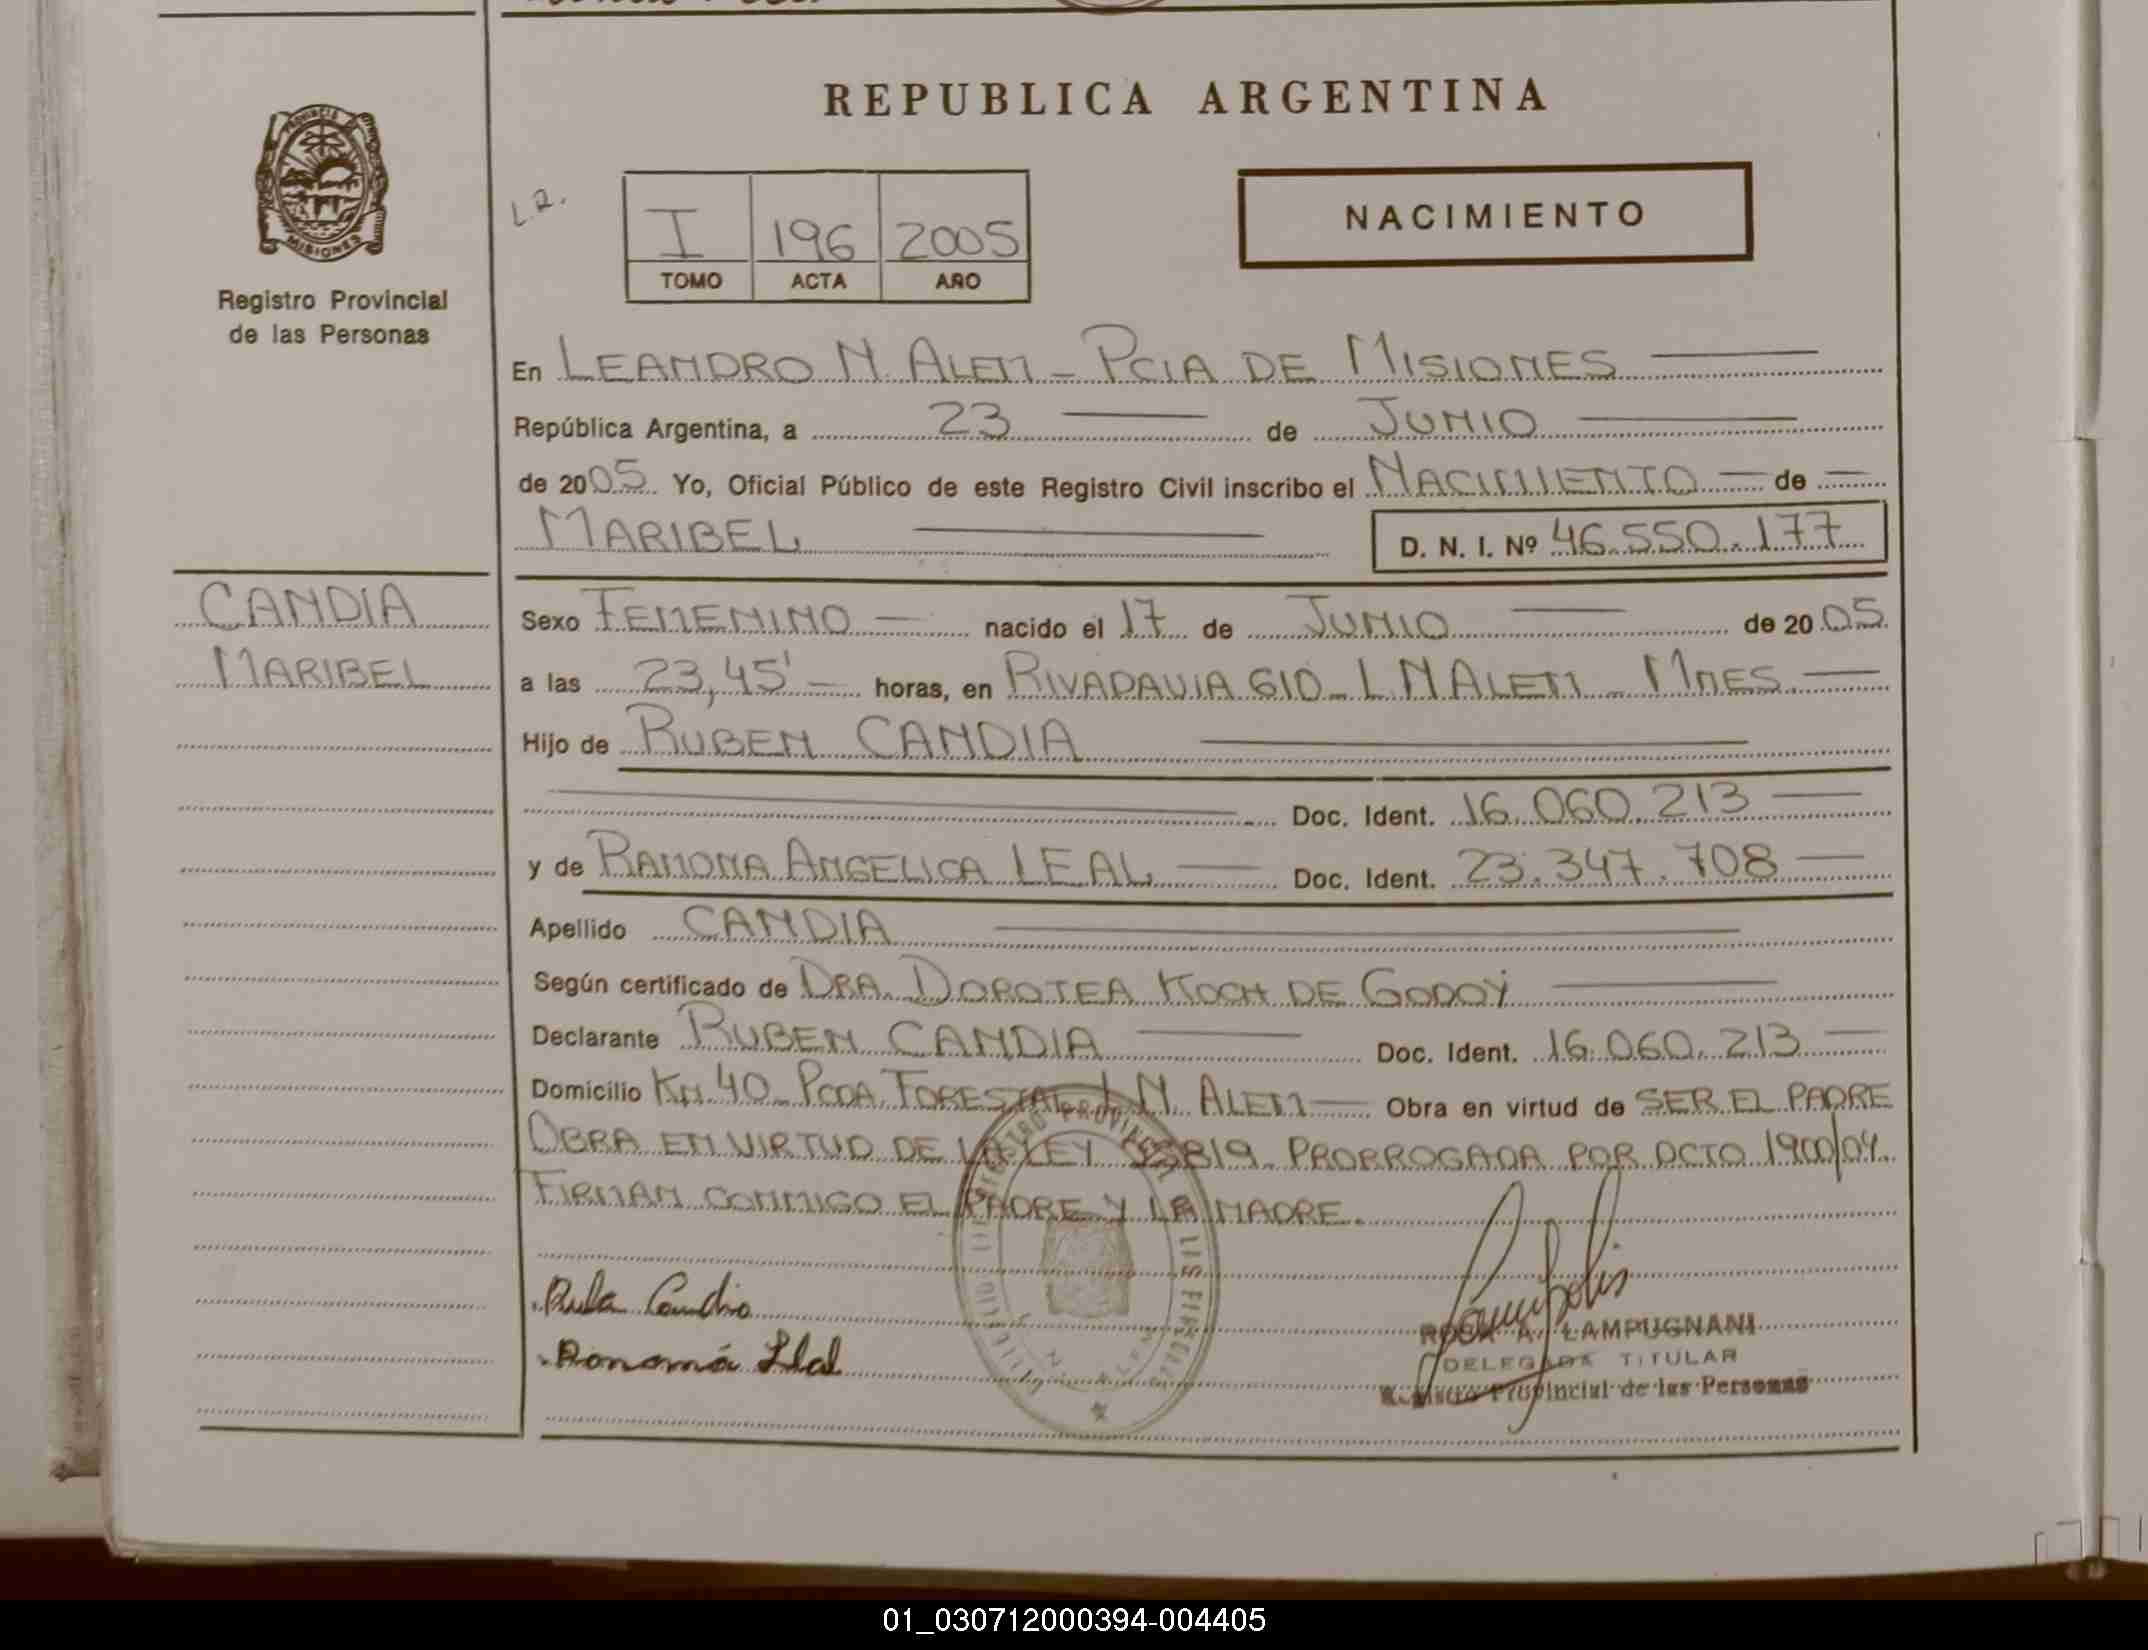 REPUBLICA ARGENTINA
PROVINCIA DE
MISIONES
Registro Provincial
de las Personas
L.R.
I 196 2005
TOMO ACTA AÑO
NACIMIENTO
En LEANDRO N. ALEM - PCIA DE MISIONES
República Argentina, a 23 de JUNIO
de 2005 Yo, Oficial Público de este Registro Civil inscribo el NACIMIENTO de
MARIBEL D. N. I. Nº 46.550.177
CANDIA
MARIBEL
Sexo FEMENINO nacido el 17 de JUNIO de 2005
a las 23,45' horas, en RIVADAVIA 610 - L N ALEM - MNES.
Hijo de RUBEN CANDIA
Doc. Ident. 16.060.213
y de RAMONA ANGELICA LEAL Doc. Ident. 23.347.708
Apellido CANDIA
Según certificado de DRA. DOROTEA KOCH DE GODOY
Declarante RUBEN CANDIA Doc. Ident. 16.060.213
Domicilio KM. 40 - PCDA. FORESTAL L N. ALEM Obra en virtud de SER EL PADRE
OBRA EN VIRTUD DE LA LEY 25819 PRORROGADA POR DCTO 1900/04.
FIRMAN CONMIGO EL PADRE Y LA MADRE.
Candia
Ramona Leal
ROSA A. LAMPUGNANI
DELEGADA TITULAR
Registro Provincial de las Personas
01_030712000394-004405